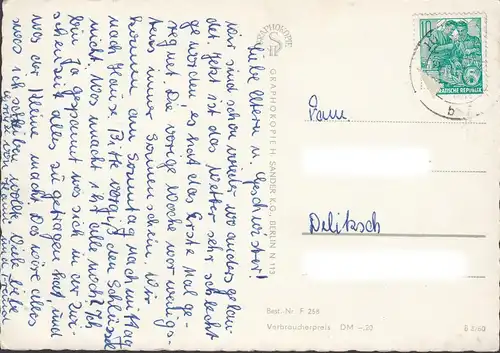 Liebe Eltern u. Geschwister!
Wir sind schon wieder wo anders gelan-
det. Jetzt ist das Wetter sehr schlecht
geworden, es hat das Erste Mal ge-
regnet. Die vorige Woche war wenigs-
tens immer Sonnenschein. Wir
kommen am Sonntag nachmittag
nach Haus. Bitte vergiß den Schlüssel
nicht. Was macht ihr alle noch? Ich
bin ja gespannt was sich in der Zwi-
schenzeit alles zu getragen hat, und
was der Kleine macht. Das wäre alles
was ich schreiben wollte. Viele liebe
Grüße von und
GRAPHOKOPIE
GRAPHOKOPIE H. SANDER K.G., BERLIN N 113
10
ATISCHE REPUBLIK
b
Fam.
Delitzsch
Best.-Nr. F 256
Verbraucherpreis DM -.20
B 3/60